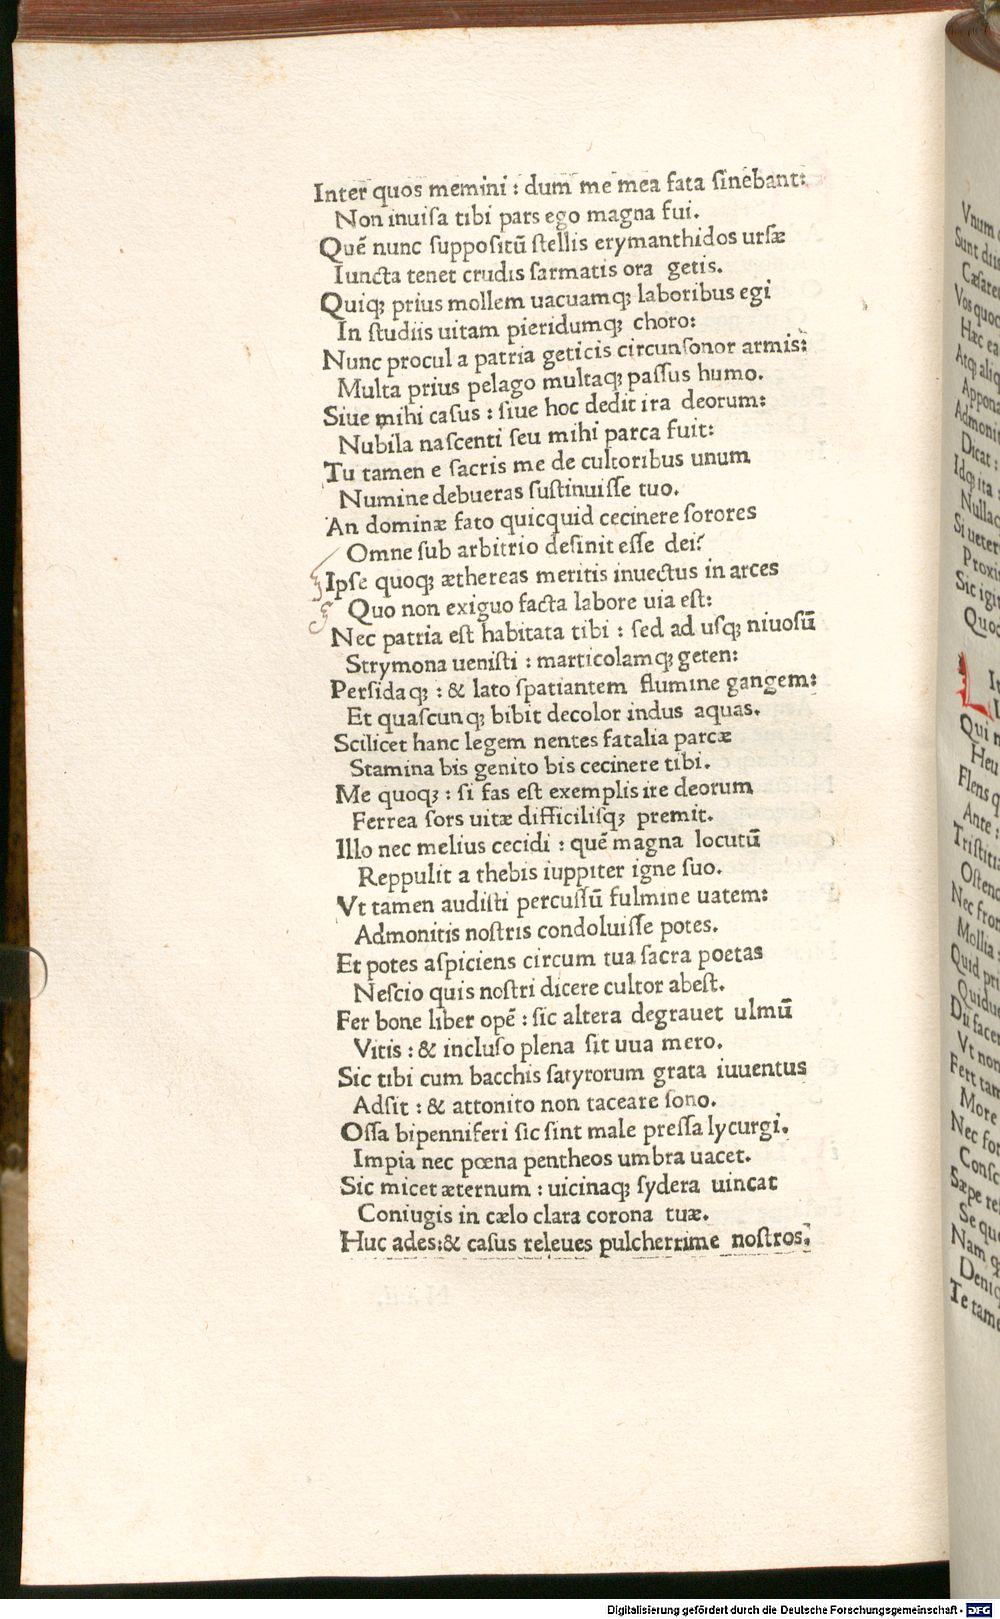 Inter quos memini : dum me mea fata ſinebant:
Non inuiſa tibi pars ego magna fui.
Quē nunc ſuppoſitū ſtellis erymanthidos urſæ
Iuncta tenet crudis ſarmatis ora getis.
Quiqꝫ prius mollem uacuamqꝫ laboribus egi
In ſtudiis uitam pieridumqꝫ choro:
Nunc procul a patria geticis circunſonor armis:
Multa prius pelago multaqꝫ paſſus humo.
Siue mihi caſus : ſiue hoc dedit ira deorum:
Nubila naſcenti ſeu mihi parca fuit:
Tu tamen e ſacris me de cultoribus unum
Numine debueras ſuſtinuiſſe tuo.
An dominæ fato quicquid cecinere ſorores
Omne ſub arbitrio deſinit eſſe dei?
Ipſe quoqꝫ æthereas meritis inuectus in arces
Quo non exiguo facta labore uia eſt:
Nec patria eſt habitata tibi : ſed ad uſqꝫ niuoſū
Strymona ueniſti : marticolamqꝫ geten:
Perſidaqꝫ : & lato ſpatiantem flumine gangem:
Et quaſcunqꝫ bibit decolor indus aquas.
Scilicet hanc legem nentes fatalia parcæ
Stamina bis genito bis cecinere tibi.
Me quoqꝫ : ſi fas eſt exemplis ire deorum
Ferrea ſors uitæ difficiliſqꝫ premit.
Illo nec melius cecidi : quē magna locutū
Reppulit a thebis iuppiter igne ſuo.
Vt tamen audiſti percuſſū fulmine uatem:
Admonitis noſtris condoluiſſe potes.
Et potes aſpiciens circum tua ſacra poetas
Neſcio quis noſtri dicere cultor abeſt.
Fer bone liber opē : ſic altera degrauet ulmū
Vitis : & incluſo plena ſit uua mero.
Sic tibi cum bacchis ſatyrorum grata iuuentus
Adſit : & attonito non taceare ſono.
Oſſa bipenniferi ſic ſint male preſſa lycurgi.
Impia nec pœna pentheos umbra uacet.
Sic micet æternum : uicinaqꝫ ſydera uincat
Coniugis in cælo clara corona tuæ.
Huc ades:& caſus releues pulcherrime noſtros.
Vnum
Sunt
Cæſare
Vos quoc
Hæc ea
Atqꝫ aliq
Appona
Admonit
Dicat :
Idqꝫ ita :
Nullac
Si ueter
Proxi
Sic igit
Quoc
Qui n
Heu
Flens q
Ante :
Triſtiti
Oſtend
Nec fron
Mollia :
Quid pri
Quidue
Dii facer
Vt non
Fert tam
More
Nec for
Conſc
Sæpe re
Se que
Nam qꝫ
Deniq
Te tame
Digitalisierung gefördert durch die Deutsche Forschungsgemeinschaft - DFG